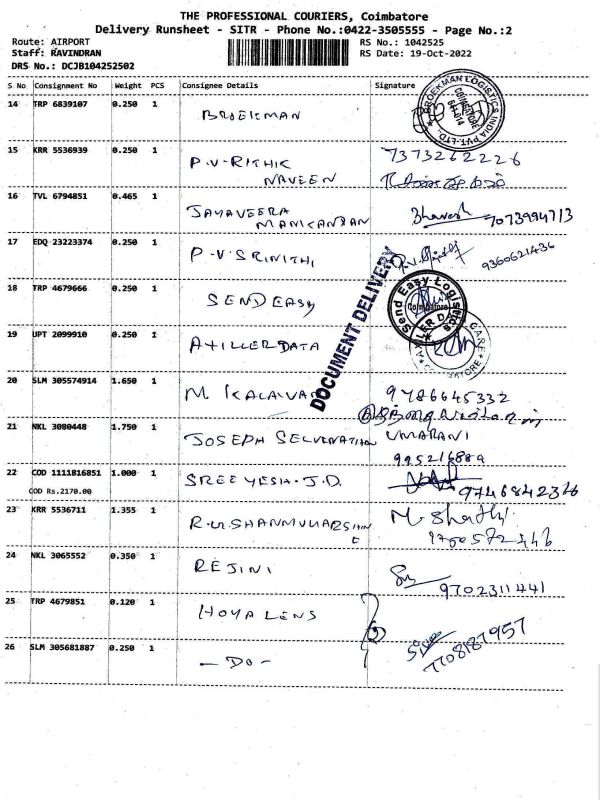 THE PROFESSIONAL COURIERS, Coimbatore
Delivery Runsheet - SITR - Phone No.:0422-3505555 - Page No.:2
Route: AIRPORT
RS No.: 1042525
Staff: RAVINDRAN
RS Date: 19-Oct-2022
DRS No.: DCJB104252502
S No Consignment No Weight PCS Consignee Details Signature
14 TRP 6839107 0.250 1 BROEKMAN
BROEKMAN LOGISTICS INDIA PVT. LTD. COIMBATORE 641-014
15 KRR 5536939 0.250 1 P.V-RITHIK 7373262226
NAVEEN
16 TVL 6794851 0.465 1 JAYAVEERA Bhavesh 7073994713
MANIKANDAN
17 EDQ 23223374 0.250 1 P.V.SRINITHI 9360621436
DOCUMENT DELIVERY
18 TRP 4679666 0.250 1 SENDEASY
Send Easy Logistics Coimbatore
19 UPT 2099910 0.250 1
20 SLM 305574914 1.650 1 M 9786645332
21 NKL 3080448 1.750 1 JOSEPH UMARANI
22 COD 1111816851 1.000 1 SREEYESH.J.D.
COD Rs.2170.00
9746842326
23 KRR 5536711 1.355 1
24 NKL 3065552 0.350 1 REJINI
9702311441
25 TRP 4679851 0.120 1 HOYA LENS
26 SLM 305681887 0.250 1 - DO - 7708187957